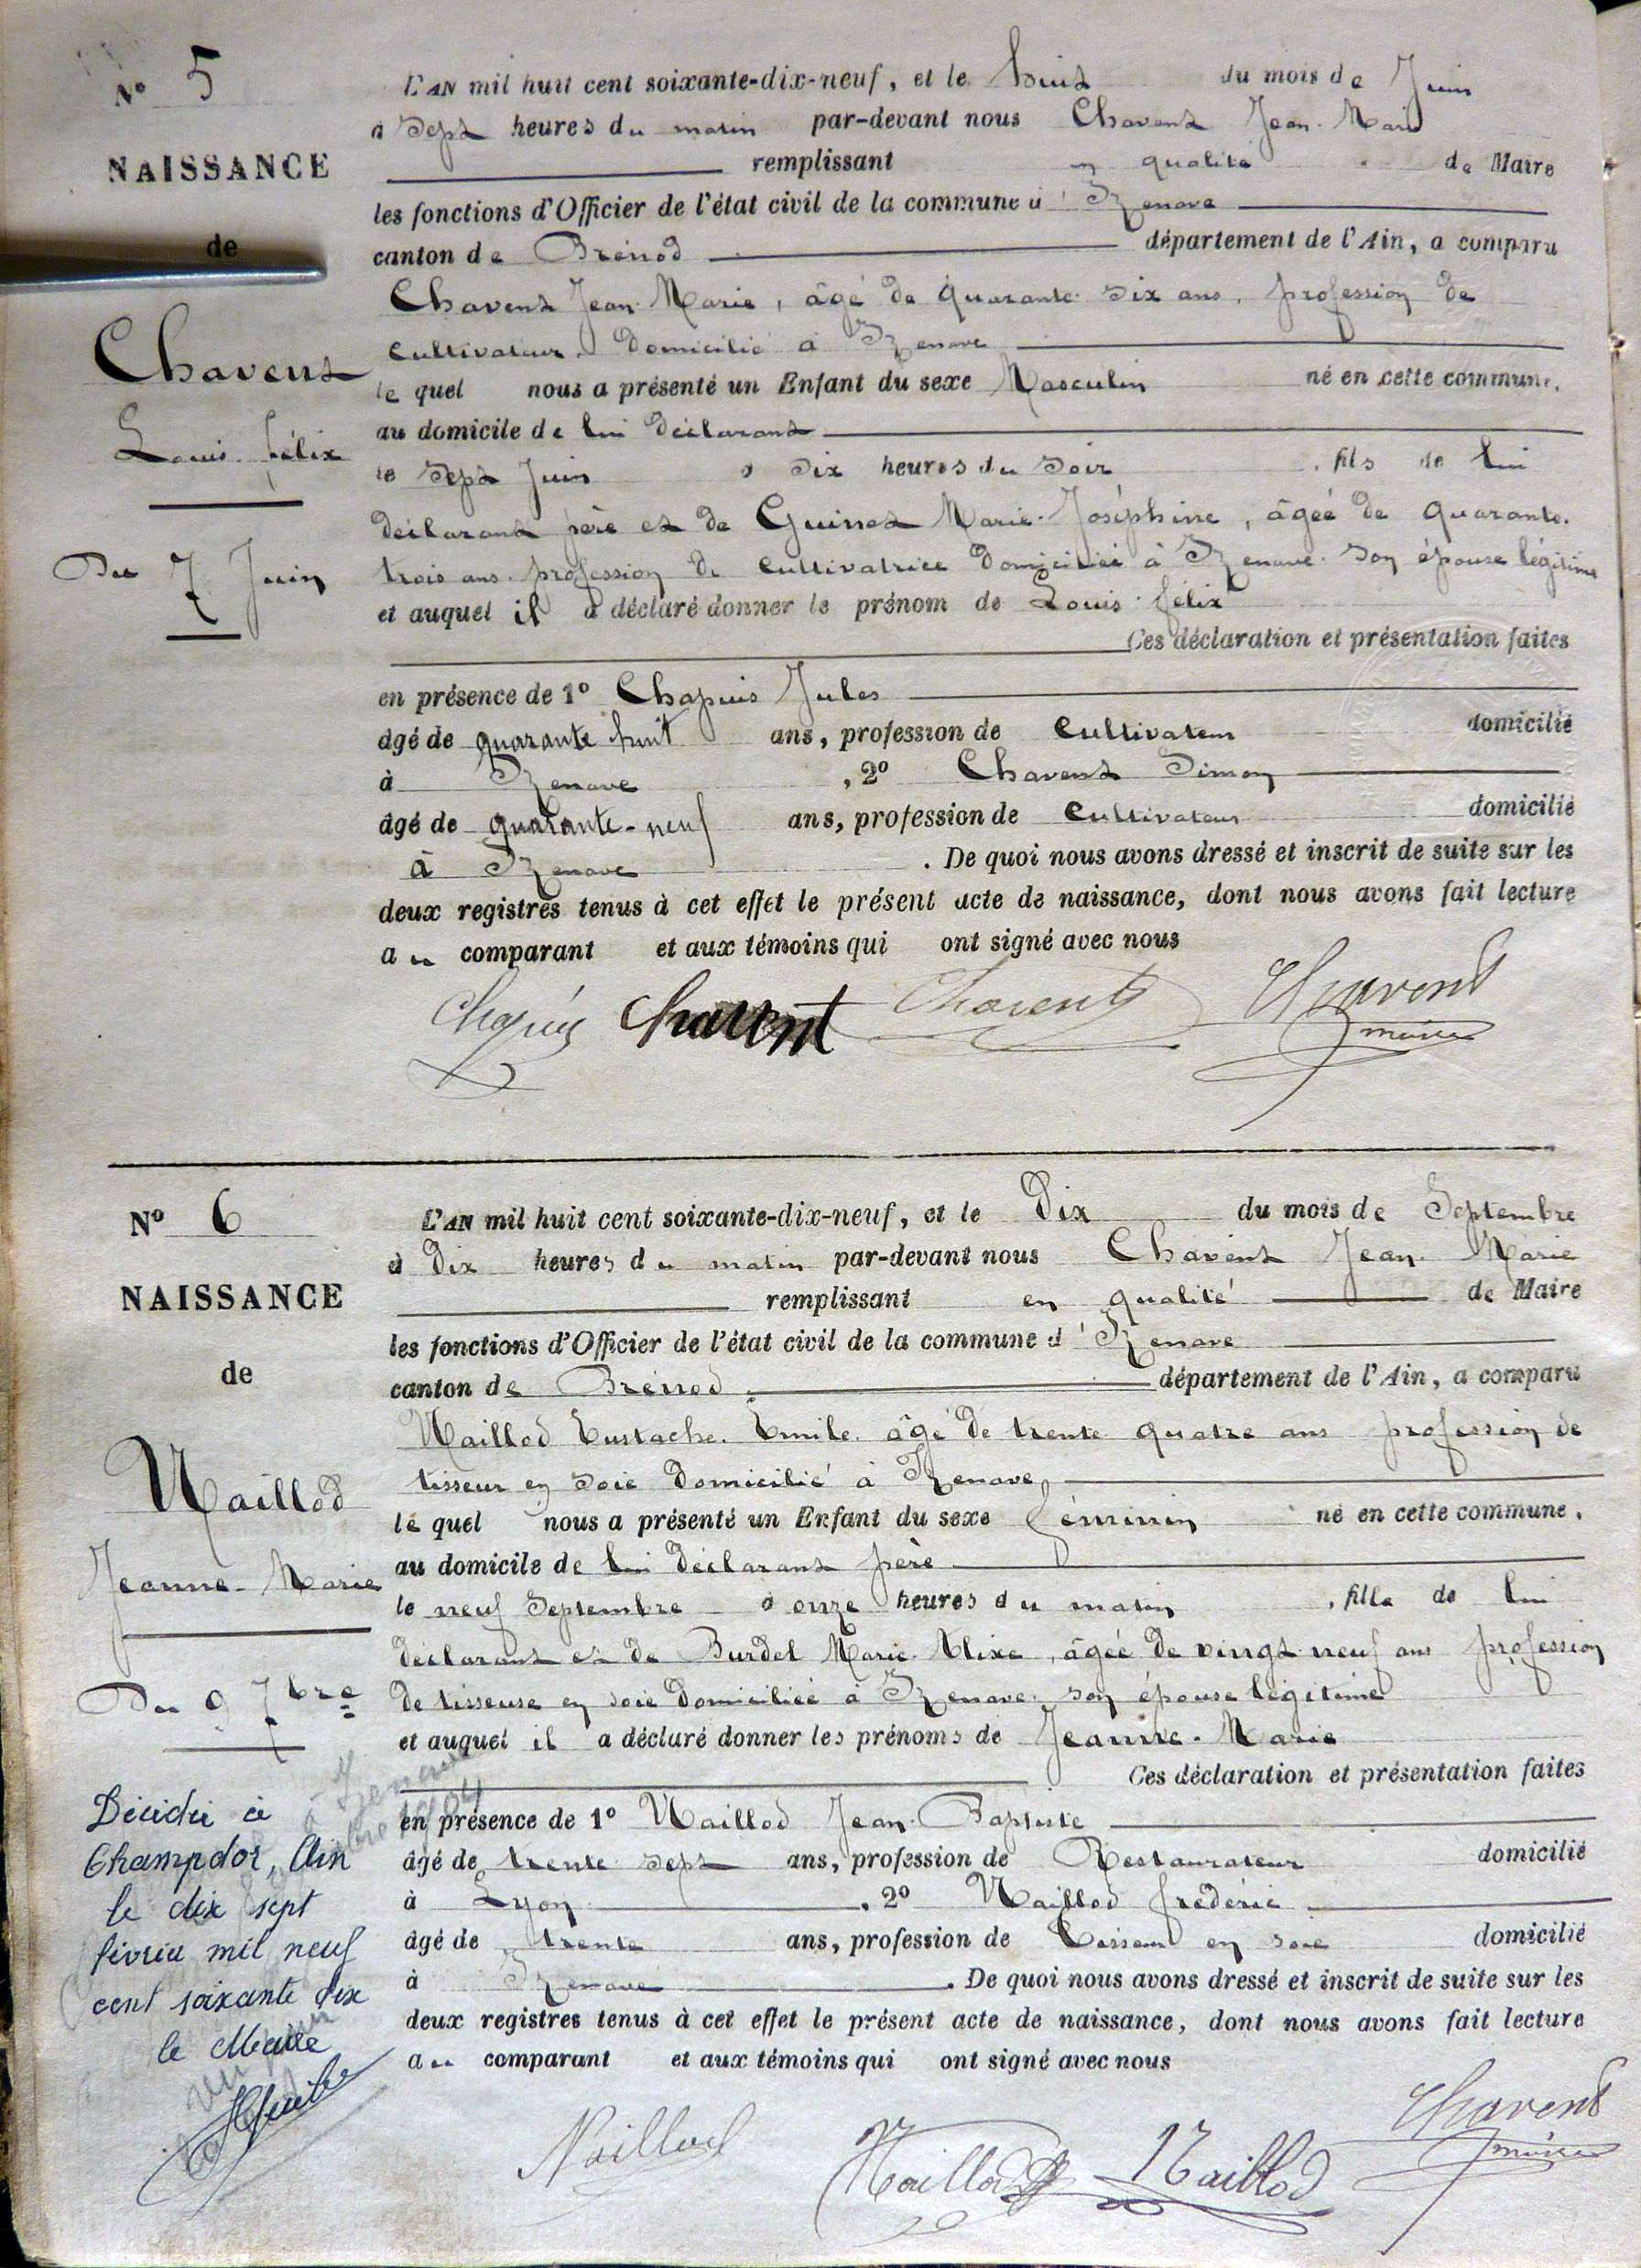 N° 5
NAISSANCE
de
Chavent
Louis félix
Du 7 Juin
L'AN mil huit cent soixante-dix-neuf, et le huit du mois de Juin
à Sept heures du matin par-devant nous Chavent Jean-Marie
remplissant en qualité de Maire
les fonctions d'Officier de l'état civil de la commune d'Izenave
canton de Brénod département de l'Ain, a comparu
Chavent Jean-Marie, âgé de quarante six ans, profession de
Cultivateur. Domicilié à Izenave
le quel nous a présenté un Enfant du sexe Masculin né en cette commune,
au domicile de lui déclarant
le Sept Juin à dix heures du soir, fils de lui
déclarant père et de Guinet Marie-Joséphine, âgée de quarante-
trois ans. profession de Cultivatrice Domiciliée à Izenave. son épouse légitime
et auquel il a déclaré donner le prénom de Louis félix
Ces déclaration et présentation faites
en présence de 1° Chapuis Jules
âgé de quarante huit ans, profession de Cultivateur domicilié
à Izenave, 2° Chavent Simon
âgé de quarante-neuf ans, profession de Cultivateur domicilié
à Izenave. De quoi nous avons dressé et inscrit de suite sur les
deux registres tenus à cet effet le présent acte de naissance, dont nous avons fait lecture
au comparant et aux témoins qui ont signé avec nous
Chapuis Chavent Chavent Chavent
maire
N° 6
NAISSANCE
de
Maillod
Jeanne-Marie
Du 9 7bre
Décédée à
Champdor, Ain
le dix sept
février mil neuf
cent soixante dix
le Maire
L'AN mil huit cent soixante-dix-neuf, et le Dix du mois de Septembre
à Dix heures du matin par-devant nous Chavent Jean-Marie
remplissant en qualité de Maire
les fonctions d'Officier de l'état civil de la commune d'Izenave
canton de Brénod département de l'Ain, a comparu
Maillod Eustache. Emile. âgé de trente quatre ans profession de
tisseur en soie Domicilié à Izenave,
le quel nous a présenté un Enfant du sexe féminin né en cette commune,
au domicile de lui déclarant père
le neuf Septembre à onze heures du matin, fille de lui
déclarant et de Burdel Marie Elixe, âgée de vingt neuf ans profession
de tisseuse en soie Domiciliée à Izenave. son épouse légitime
et auquel il a déclaré donner les prénoms de Jeanne-Marie
Ces déclaration et présentation faites
en présence de 1° Maillod Jean-Baptiste
âgé de trente sept ans, profession de Restaurateur domicilié
à Lyon. 2° Maillod frédéric
âgé de trente ans, profession de tisseur en soie domicilié
à Izenave. De quoi nous avons dressé et inscrit de suite sur les
deux registres tenus à cet effet le présent acte de naissance, dont nous avons fait lecture
au comparant et aux témoins qui ont signé avec nous
Maillod Maillod Maillod Chavent
maire